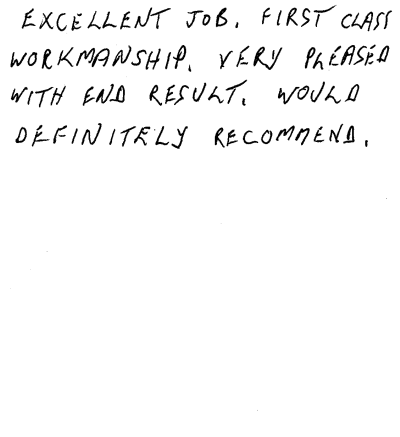 EXCELLENT JOB. FIRST CLASS
WORKMANSHIP. VERY PLEASED
WITH END RESULT. WOULD
DEFINITELY RECOMMEND.